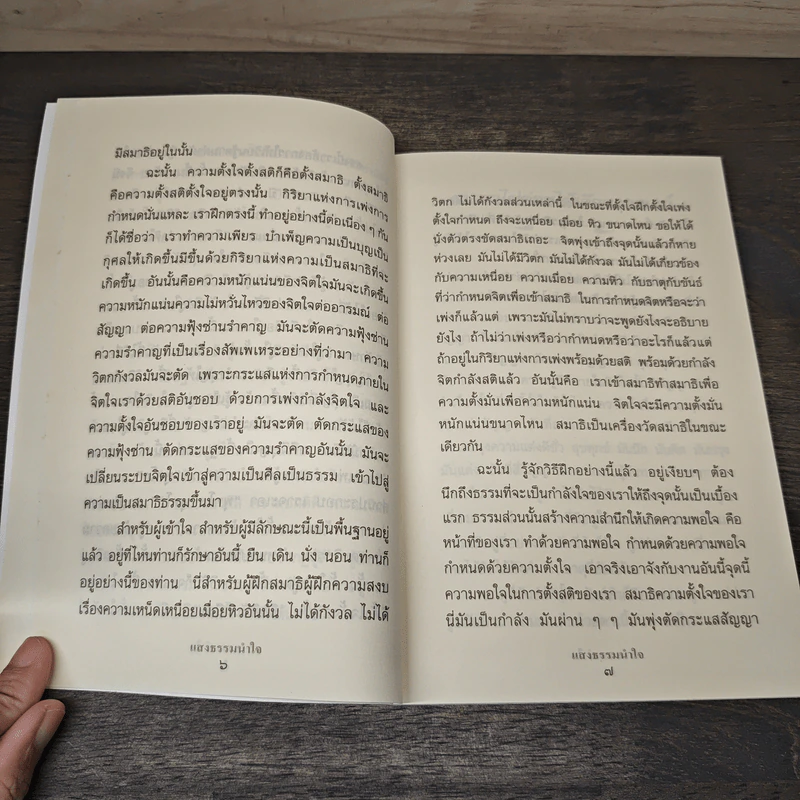 มีสมาธิอยู่ในนั้น
ฉะนั้น ความตั้งใจตั้งสติก็คือตั้งสมาธิ ตั้งสมาธิ
คือความตั้งสติตั้งใจอยู่ตรงนั้น กิริยาแห่งการเพ่งการ
กำหนดนั่นแหละ เราฝึกตรงนี้ ทำอยู่อย่างนี้ต่อเนื่อง ๆ กัน
ก็ได้ชื่อว่า เราทำความเพียร บำเพ็ญความเป็นบุญเป็น
กุศลให้เกิดขึ้นมีขึ้นด้วยกิริยาแห่งความเป็นสมาธิที่จะ
เกิดขึ้น อันนั้นคือความหนักแน่นของจิตใจมันจะเกิดขึ้น
ความหนักแน่นความไม่หวั่นไหวของจิตใจต่ออารมณ์ ต่อ
สัญญา ต่อความฟุ้งซ่านรำคาญ มันจะตัดความฟุ้งซ่าน
ความรำคาญที่เป็นเรื่องสัพเพเหระอย่างที่ว่ามา ความ
วิตกกังวลมันจะตัด เพราะกระแสแห่งการกำหนดภายใน
จิตใจเราด้วยสติอันชอบ ด้วยการเพ่งกำลังจิตใจ และ
ความตั้งใจอันชอบของเราอยู่ มันจะตัด ตัดกระแสของ
ความฟุ้งซ่าน ตัดกระแสของความรำคาญอันนั้น มันจะ
เปลี่ยนระบบจิตใจเข้าสู่ความเป็นศีลเป็นธรรม เข้าไปสู่
ความเป็นสมาธิธรรมขึ้นมา
สำหรับผู้เข้าใจ สำหรับผู้มีลักษณะนี้เป็นพื้นฐานอยู่
แล้ว อยู่ที่ไหนท่านก็รักษาอันนี้ ยืน เดิน นั่ง นอน ท่านก็
อยู่อย่างนี้ของท่าน นี่สำหรับผู้ฝึกสมาธิผู้ฝึกความสงบ
เรื่องความเหน็ดเหนื่อยเมื่อยหิวอันนั้น ไม่ได้กังวล ไม่ได้
แสงธรรมนำใจ
๖
วิตก ไม่ได้กังวลส่วนเหล่านี้ ในขณะที่ตั้งใจฝึกตั้งใจเพ่ง
ตั้งใจกำหนด ถึงจะเหนื่อย เมื่อย หิว ขนาดไหน ขอให้ได้
นั่งตัวตรงขัดสมาธิเถอะ จิตพุ่งเข้าถึงจุดนั้นแล้วก็หาย
ห่วงเลย มันไม่ได้มีวิตก มันไม่ได้กังวล มันไม่ได้เกี่ยวข้อง
กับความเหนื่อย ความเมื่อย ความหิว กับธาตุกับขันธ์
ที่ว่ากำหนดจิตเพื่อเข้าสมาธิ ในการกำหนดจิตหรือจะว่า
เพ่งก็แล้วแต่ เพราะมันไม่ทราบว่าจะพูดยังไงจะอธิบาย
ยังไง ถ้าไม่ว่าเพ่งหรือว่ากำหนดหรือว่าอะไรก็แล้วแต่
ถ้าอยู่ในกิริยาแห่งการเพ่งพร้อมด้วยสติ พร้อมด้วยกำลัง
จิตกำลังสติแล้ว อันนั้นคือ เราเข้าสมาธิทำสมาธิเพื่อ
ความตั้งมั่นเพื่อความหนักแน่น จิตใจจะมีความตั้งมั่น
หนักแน่นขนาดไหน สมาธิเป็นเครื่องวัดสมาธิในขณะ
เดียวกัน
ฉะนั้น รู้จักวิธีฝึกอย่างนี้แล้ว อยู่เงียบๆ ต้อง
นึกถึงธรรมที่จะเป็นกำลังใจของเราให้ถึงจุดนั้นเป็นเบื้อง
แรก ธรรมส่วนนั้นสร้างความสำนึกให้เกิดความพอใจ คือ
หน้าที่ของเรา ทำด้วยความพอใจ กำหนดด้วยความพอใจ
กำหนดด้วยความตั้งใจ เอาจริงเอาจังกับงานอันนี้จุดนี้
ความพอใจในการตั้งสติของเรา สมาธิความตั้งใจของเรา
นี่มันเป็นกำลัง มันผ่าน ๆ ๆ มันพุ่งตัดกระแสสัญญา
แสงธรรมนำใจ
๗